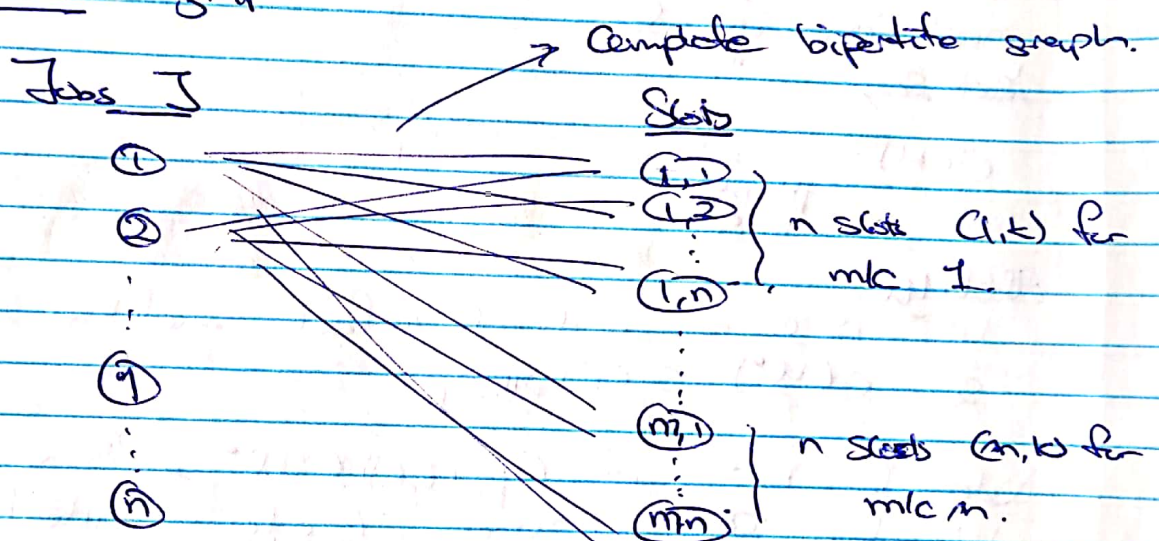 Complete bipartite graph.
Jobs J
Slots
1
(1,1)
2
(1,2)
n slots (1,k) for
m/c 1.
(1,n)
j
(m,1)
n slots (m,k) for
n
m/c m.
(m,n)